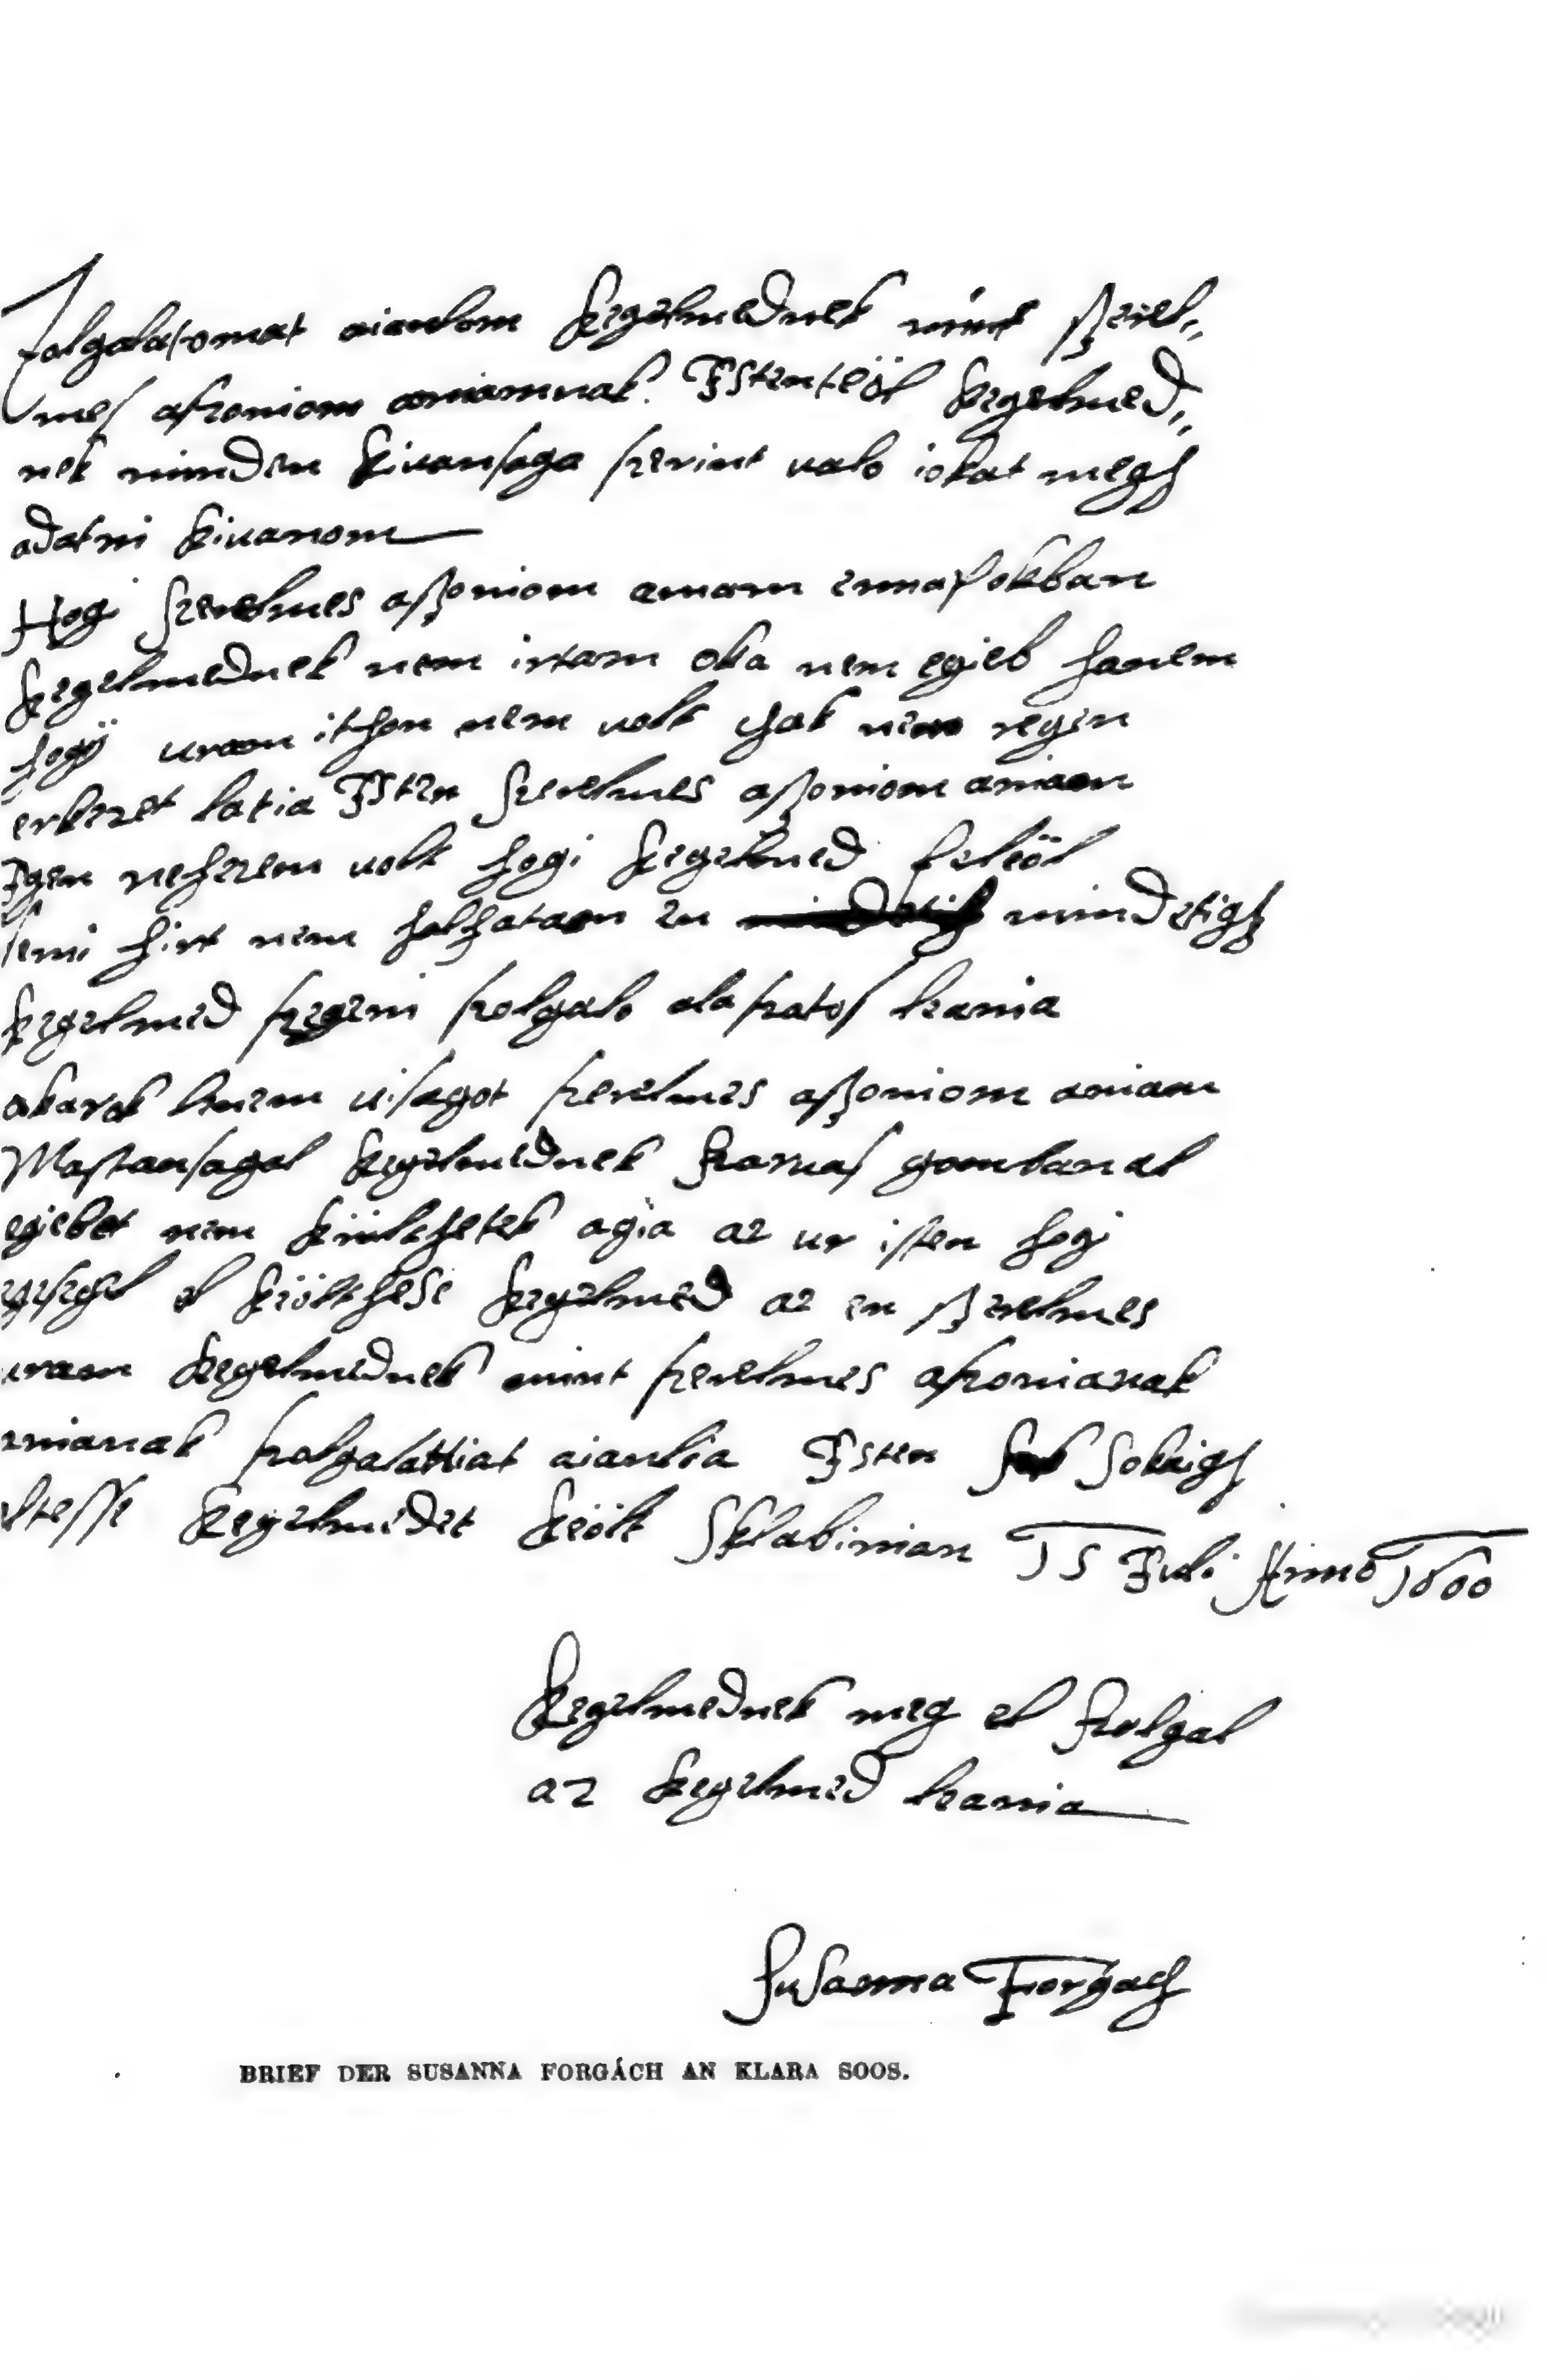 Zolgalatomat aianlom kegelmednek mint szerel„
mes aszoniom aniamnak. Istenteöl kegelmed„
nek minden kiuansaga szerint ualo iokat megh
adatni kiuanom
Hogi szerelmes aszoniom aniam ennapokban
kegelmednek nem irtam oka nem egieb hanem
hogÿ uram ithon nem uolt chak nem regen
erkezet latia Isten szerelmes aszoniom aniam
Igen nehezem uolt hogi kegelmed feleöl
semi hirt nem halhatam en mindetigh
kegelmed szegeni szolgalo alaszatos leania
akarok lenem uisagot szerelmes aszoniom aniam
Mastansagal kegelmednek szaruas gombanal
egiebet nem küülchetek agia az ur isten hogi
egisegel el keölthese kegelmed az en szerelmes
uram kegelmednek mint szerelmes aszonianak
annianak szolgalattiat aianlia Isten sokaigh
eltesse kegelmedet keölt Sklabinian 15 Juli Anno 1600
Kegelmednek meg el szolgal
az kegelmed leania
Susanna Forgach
BRIEF DER SUSANNA FORGÁCH AN KLARA SOOS.